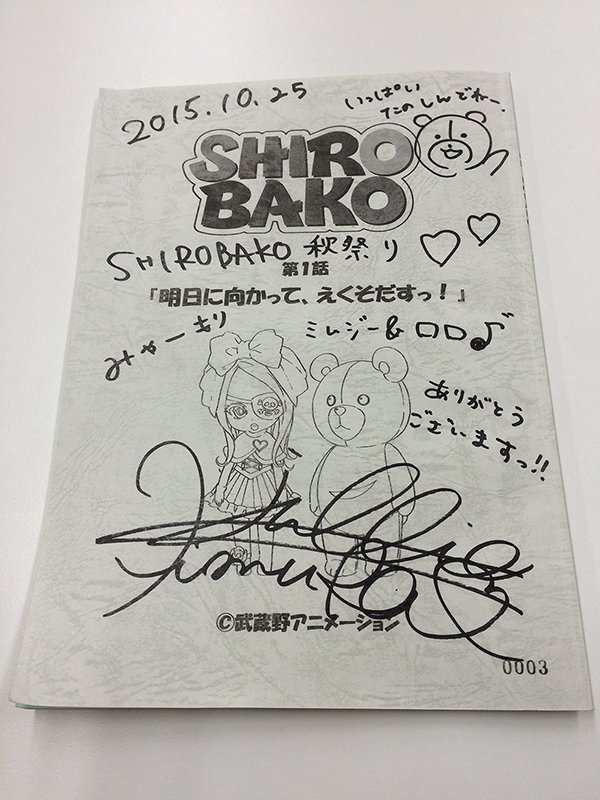 2015.10.25
いっぱい
たのしんでねー。
SHIRO
BAKO
SHIROBAKO 秋祭り♡♡
第1話
「明日に向かって、えくそだすっ!」
みゃーもり
ミムジー&ロロ♪
ありがとう
ございますっ!!
©武蔵野アニメーション
0003